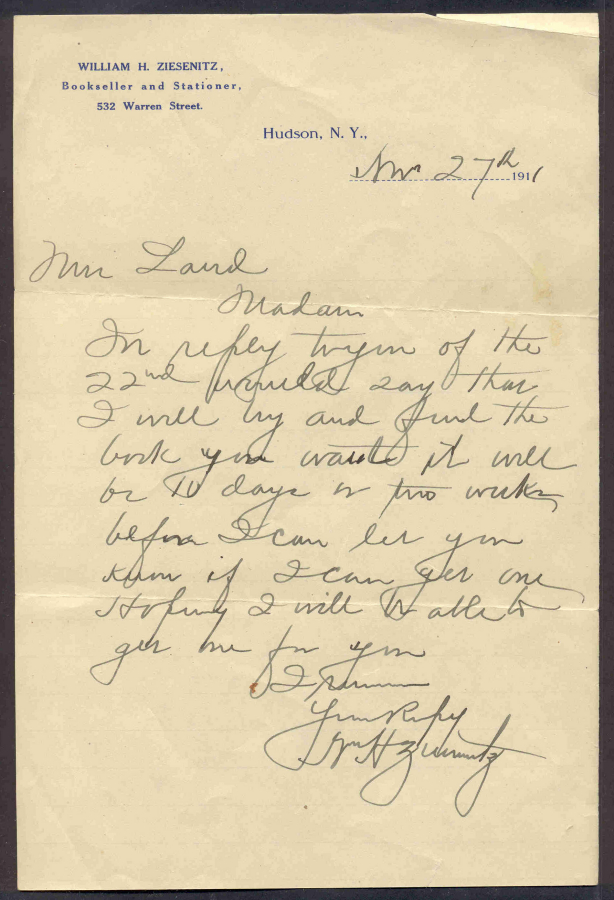 WILLIAM H. ZIESENITZ,
Bookseller and Stationer,
532 Warren Street.
Hudson, N. Y.,
Nov 27th 1911
Laird
Madam
In reply to your of the
22nd would say that
I will try and find the
book you want it will
be 10 days or two weeks
before I can let you
know if I can get one
Hoping I will be able to
get one for you
I remain
Your Respy
Wm H Ziesenitz